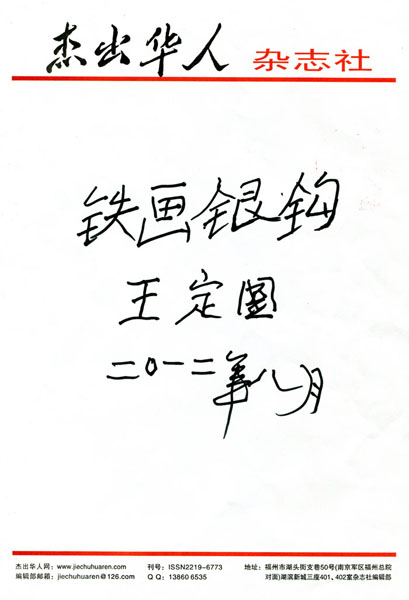 杰出华人 杂志社
铁画银钩
王定国
二〇一二年八月
杰出华人网：www.jiechuhuaren.com 刊号：ISSN2219-6773 地址：福州市湖头街支巷50号(南京军区福州总院
编辑部邮箱：jiechuhuaren@126.com Q Q：13860 6535 对面)湖滨新城三座401、402室杂志社编辑部